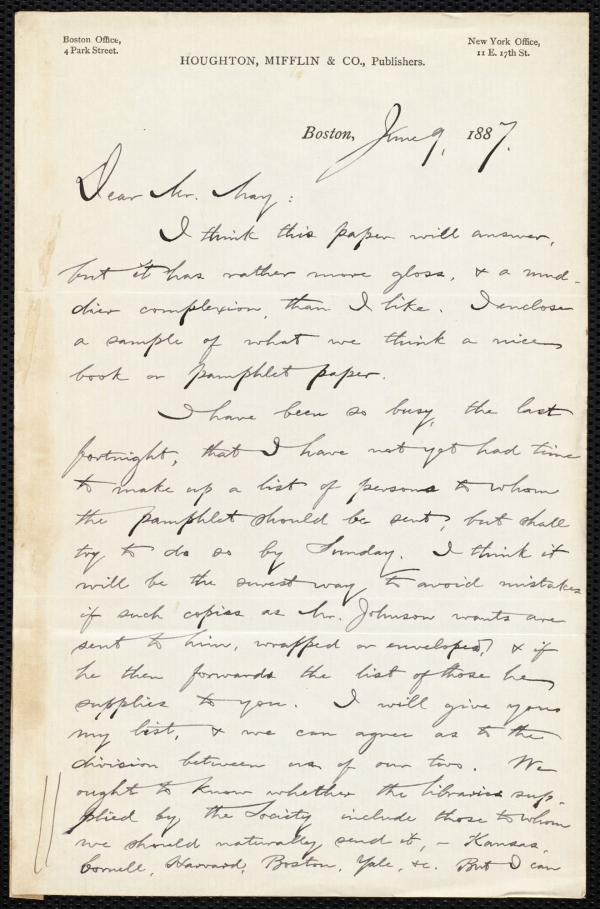 Boston Office,
4 Park Street.
New York Office,
11 E. 17th St.
HOUGHTON, MIFFLIN & CO., Publishers.
Boston, June 9, 1887.
Dear Mr. May:
I think this paper will answer,
but it has rather more gloss, & a mud-
dier complexion, than I like. I enclose
a sample of what we think a nice
book or pamphlet paper.
I have been so busy, the last
fortnight, that I have not yet had time
to make up a list of persons to whom
the pamphlet should be sent, but shall
try to do so by Sunday. I think it
will be the surest way to avoid mistakes
if such copies as Mr. Johnson wants are
sent to him, wrapped or enveloped, & if
he then forwards the list of those he
supplies to you. I will give you
my list, & we can agree as to the
division between us of our two. We
ought to know whether the libraries sup-
plied by the Society include those to whom
we should naturally send it, – Kansas,
Cornell, Harvard, Boston, Yale, &c. But I can